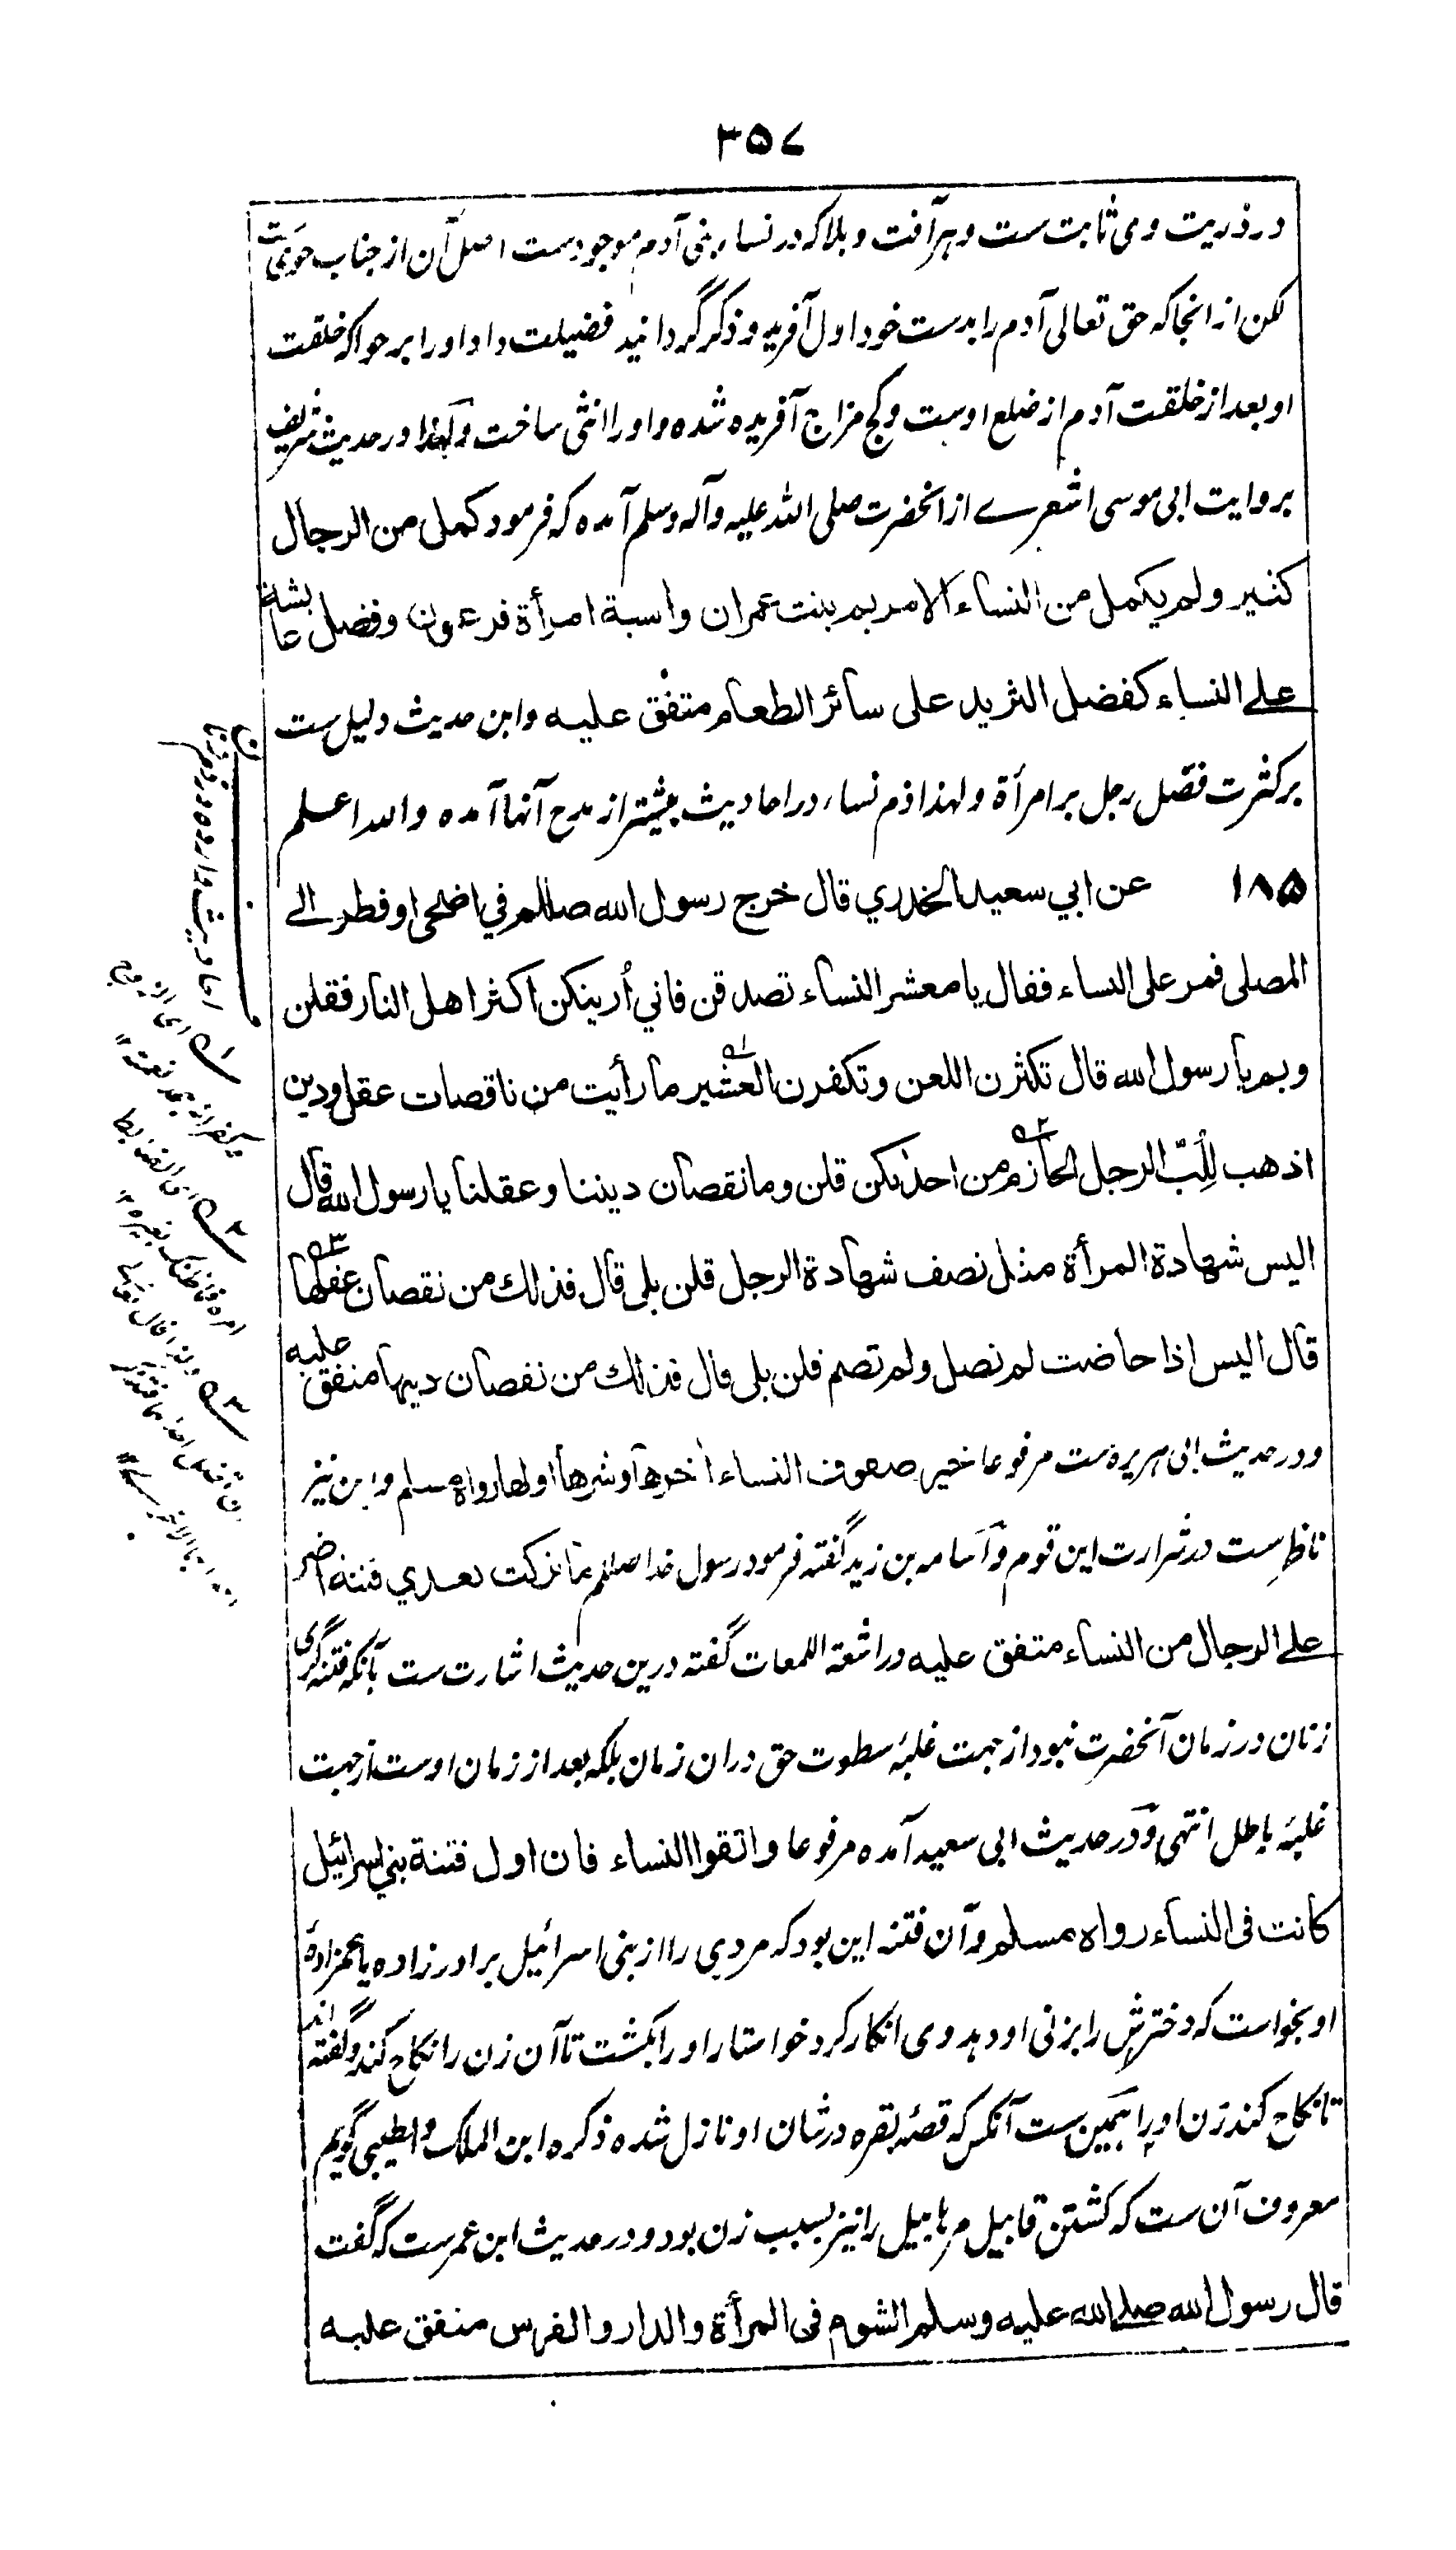 ۳۵۷
در ذریت وی ثابت ست و ہر آفت و بلا کہ در نساء بنی آدم موجودست اصل آن از جناب حوّی ست
لکن از انجا کہ حق تعالی آدم را بدست خود اول آفرید و ذکر گردانید فضیلت داد او را بر حوا کہ خلقت
او بعد از خلقت آدم از ضلع اوست و کج مزاج آفریدہ شدہ و او را انثی ساخت و لہذا در حدیث شریف
بروایت ابی موسی اشعرے از انحضرت صلی اللہ علیہ وآلہ وسلم آمدہ کہ فرمود کمل من الرجال
کثیر ولم یکمل من النساء الا مریم بنت عمران واسیة امرأة فرعون وفضل عایشة
علے النساء کفضل الثرید علی سائر الطعام متفق علیه واین حدیث دلیل ست
بر کثرت فضل رجل بر امرأة ولہذا ذم نساء در احادیث بیشتر از مدح آنہا آمدہ واللہ اعلم
۱۸۵ عن ابي سعید الخدري قال خرج رسول الله صللم في اضحی او فطر الے
المصلی فمر علی النساء فقال یا معشر النساء تصدقن فاني أریتکن اکثر اهل النار فقلن
وبم یا رسول الله قال تکثرن اللعن وتکفرن العشیر ۱ ما رأیت من ناقصات عقل ودین
اذهب للُبّ الرجل الحازم ۲ من احدٰیکن قلن وما نقصان دیننا وعقلنا یا رسول الله قال
الیس شهادة المرأة مثل نصف شهادة الرجل قلن بلی قال فذلك من نقصان عقلها ۳
قال الیس اذا حاضت لم تصل ولم تصم قلن بلی قال فذلك من نقصان دینها متفق علیه
ودر حدیث ابی ہریرہ ست مرفوعا خیر صفوف النساء اٰخرها وشرها اولها رواه مسلم واین نیز
ناظرست در شرارت این قوم و اسامہ بن زید گفتہ فرمود رسول خدا صللم ما ترکت بعدي فتنة اضر
علے الرجال من النساء متفق علیه در اشعة اللمعات گفتہ درین حدیث اشارت ست بآنکہ فتنہ گری
زنان در زمان آنحضرت نبود از جہت غلبۂ سطوت حق دران زمان بلکہ بعد از زمان اوست از جہت
غلبۂ باطل انتہی و در حدیث ابی سعید آمدہ مرفوعا واتقوا النساء فان اول فتنة بني اسرائیل
کانت فی النساء رواه مسلم و آن فتنہ این بود کہ مردی را از بنی اسرائیل برادر زادہ یا عمزادۂ
او بخواست کہ دخترش را بزنی او دہد وی انکار کرد خواستار او را بکشت تا آن زن را نکاح کند و گفتہ اند
تا نکاح کند زن او را ہمین ست آنکس کہ قصۂ بقرہ در شان او نازل شدہ ذکرہ ابن الملک والطیبی گویم
معروف آن ست کہ کشتن قابیل مر ہابیل را نیز بسبب زن بود و در حدیث ابن عمر ست کہ گفت
قال رسول الله صلے الله علیه وسلم الشوم فی المرأة والدار والفرس متفق علیه
احادیث وارده در ذم زنان
۱ ای الزوج
۲
۳